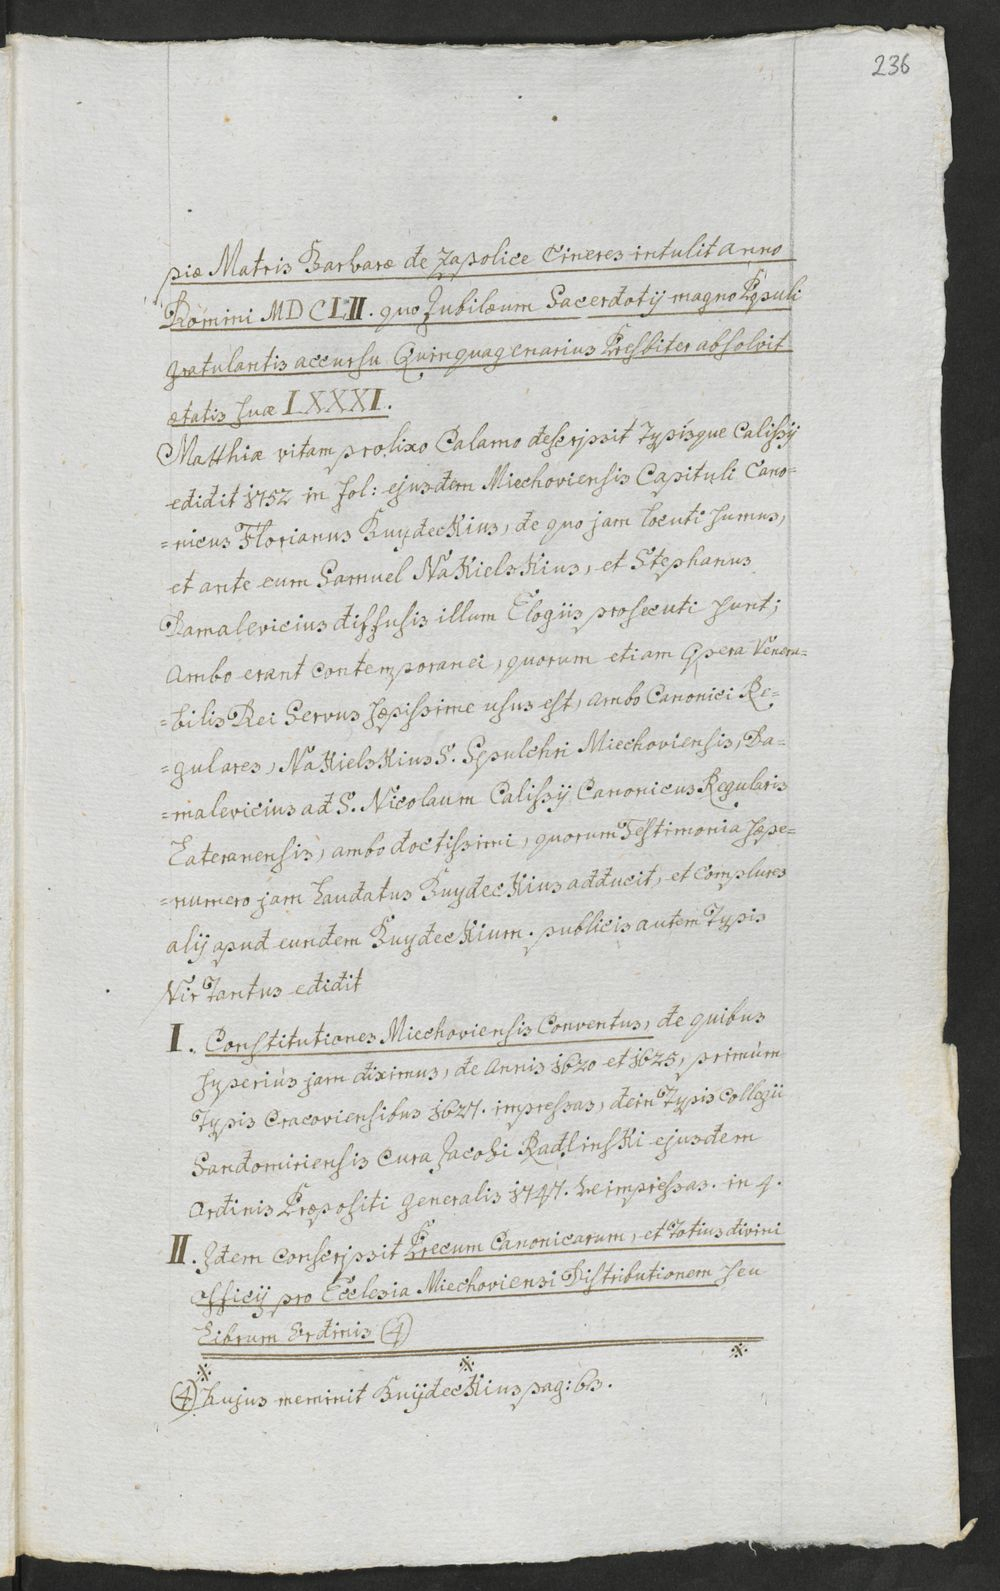 236
piæ Matris Barbaræ de Zapolice Cineres intulit Anno
Domini MDCLII. quo Jubilæum Sacerdotij magno Populi
gratulantis accursu Quinquagenarius Presbiter absolvit
ætatis suæ LXXXI.
Matthiæ vitam prolixo Calamo descripsit Typisque Calissij
edidit 1752 in fol: ejusdem Miechoviensis Capituli Cano=
=nicus Florianus Buydeckius, de quo jam locuti sumus,
et ante eum Samuel Nakielskius, et Stephanus
Damalevicius diffusis illum Elogiis prosecuti sunt;
Ambo erant contemporanei, quorum etiam Opera Venera=
=bilis Dei Servus sæpissime usus est, ambo Canonici Re=
=gulares, Nakielskius S. Sepulchri Miechoviensis, Da=
=malevicius ad S. Nicolaum Calissij Canonicus Regularis
Lateranensis, ambo doctissimi, quorum Testimonia sæpe=
=numero jam Laudatus Buydeckius adducit, et complures
alij apud eundem Buydeckium. publicis autem Typis
Vir Tantus edidit
I. Constitutiones Miechoviensis Conventus, de quibus
superius jam diximus, de Annis 1620 et 1625, primùm
Typis Cracoviensibus 1627. impressas, dein Typis Collegii
Sandomiriensis Cura Jacobi Radlinski ejusdem
Ordinis Præpositi Generalis 1747. Reimpressas. in 4.
II. Idem conscripsit Precum Canonicarum, et Totius divini
Officij pro Ecclesia Miechoviensi Distributionem seu
Librum Ordinis (4)
(4) hujus meminit Buijdeckius pag: 63.